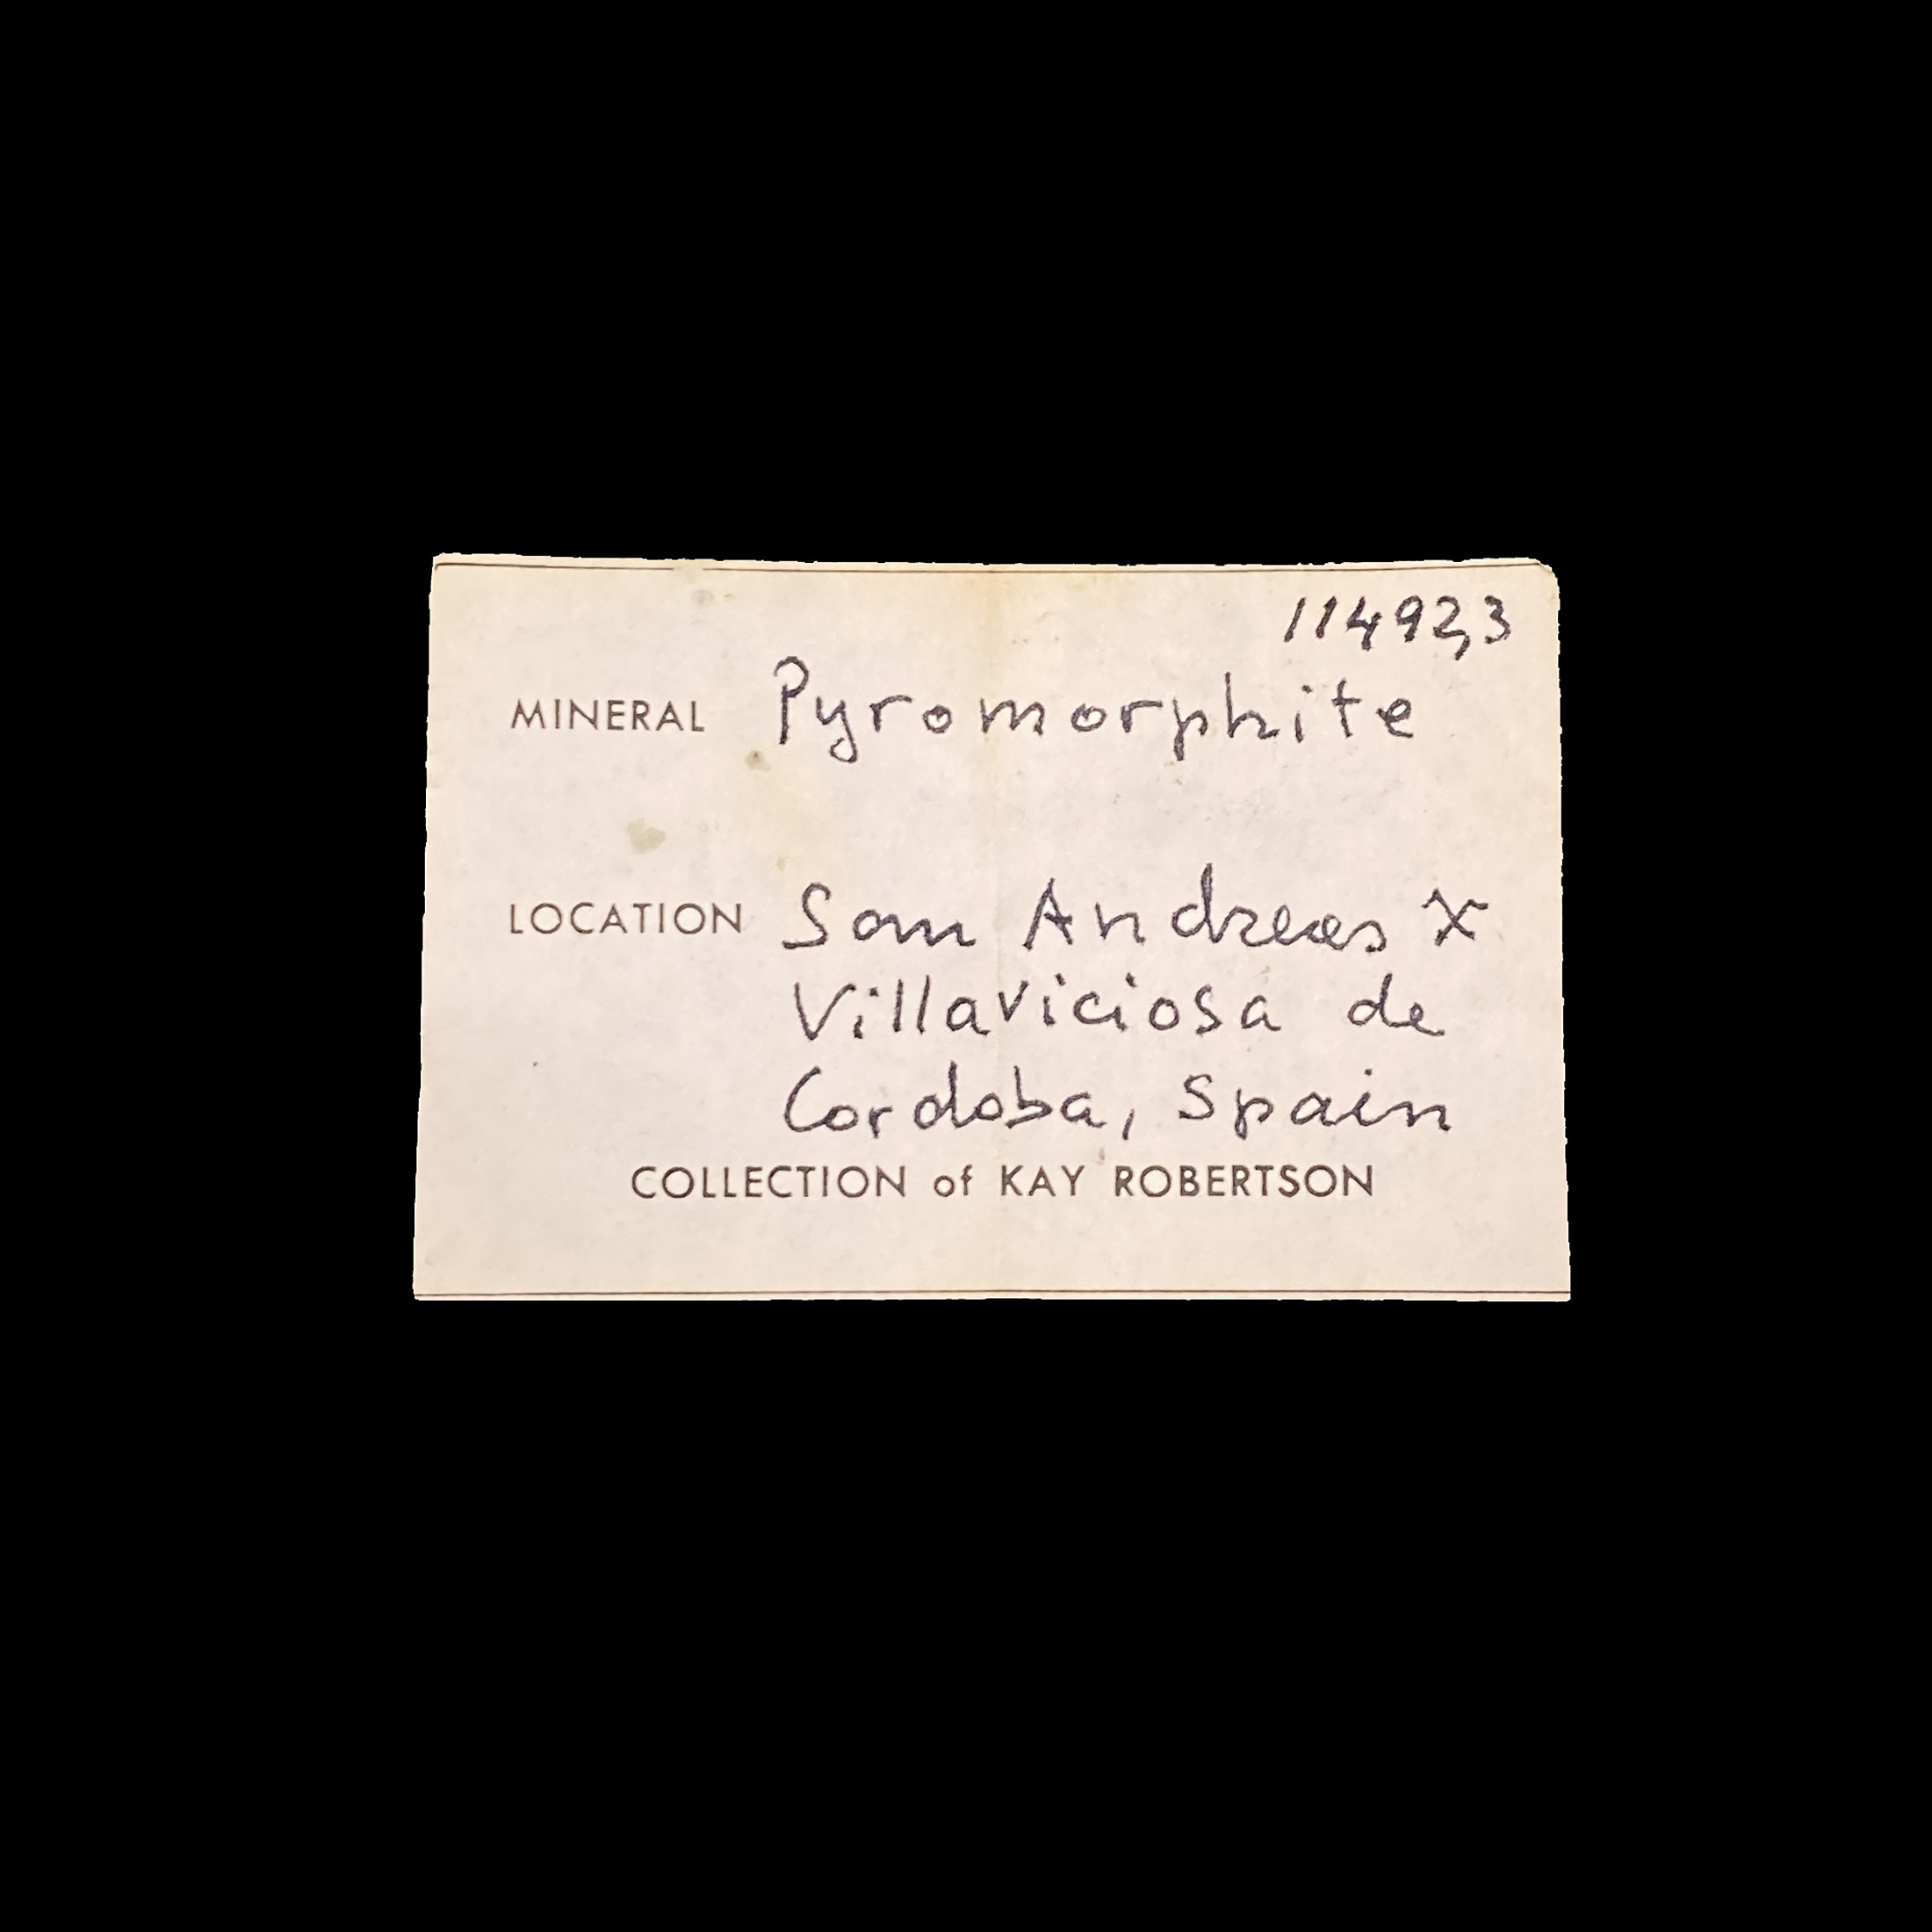 11492,3
MINERAL Pyromorphite
LOCATION San Andreas ⚒
Villaviciosa de
Cordoba, Spain
COLLECTION of KAY ROBERTSON